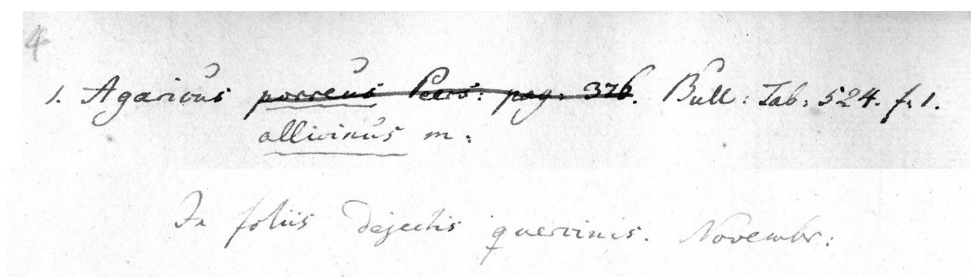 4
1. Agaricus porreus Pers: pag: 376. Bull: Tab: 524. f. 1.
allicinus m:
In foliis dejectis quercinis. Novembr: